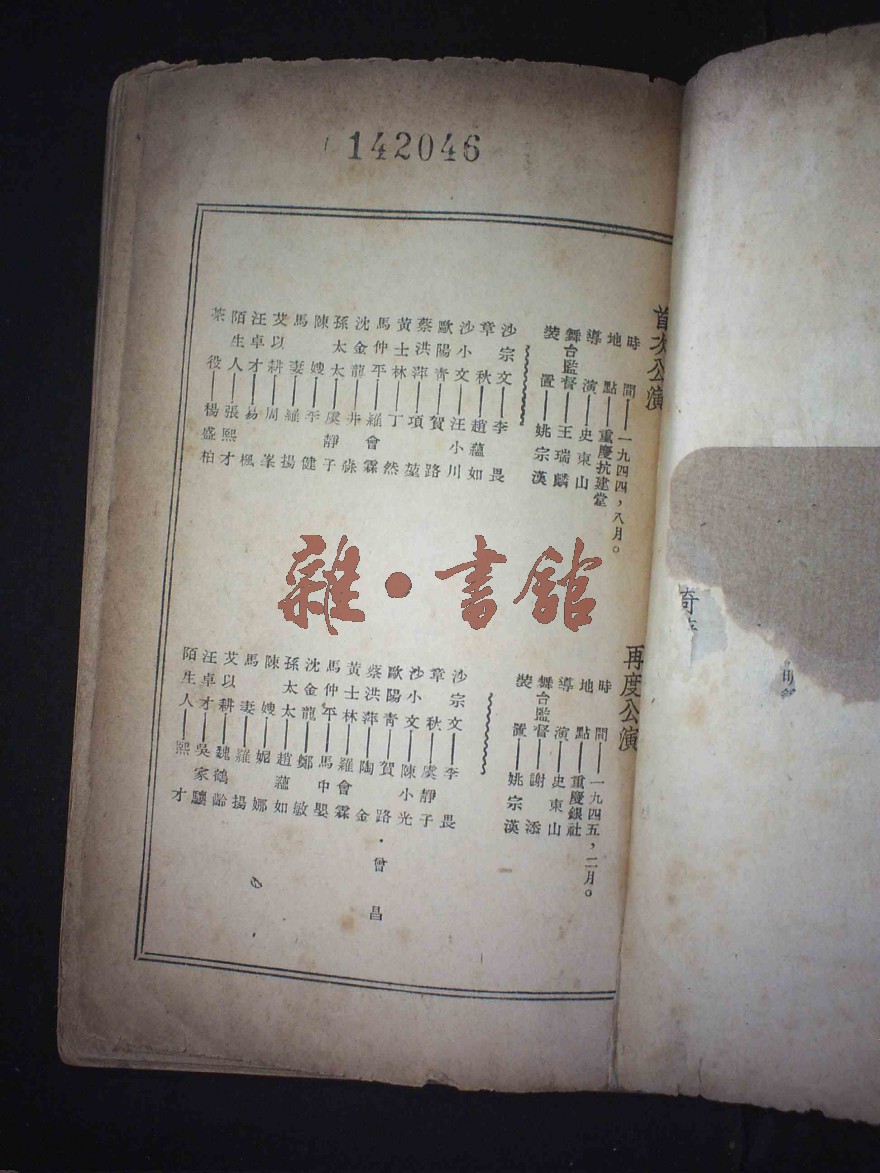 142046
首次公演
時間——一九四四，八月。
地點——重慶抗建堂
導演——史東山
舞台監督——王瑞麟
裝置——姚宗漢
沙宗文——李畏
章秋——趙蘊如
沙小文——汪小川
歐陽青——賀路
蔡洪萍——項堃
黃士林——丁然
馬仲平——羅會霖
沈金龍——井淼
孫太太——虞靜子
陳嫂——季健
馬妻——羅揚
艾以耕——周峯
汪卓才——易楓
陌生人——張熙才
茶役——楊盛柏
雜·書館
再度公演
時間——一九四五，二月。
地點——重慶銀社
導演——史東山
舞台監督——謝添
裝置——姚宗漢
沙宗文——李畏
章秋——虞靜子
沙小文——陳小光
歐陽青——賀路·曾昌
蔡洪萍——陶金
黃士林——羅會霖
馬仲平——馬中嬰
沈金龍——鄭敏
孫太太——趙蘊如
陳嫂——妮娜
馬妻——羅揚
艾以耕——魏鶴齡
汪卓才——吳家驤
陌生人——熙才
奇
明